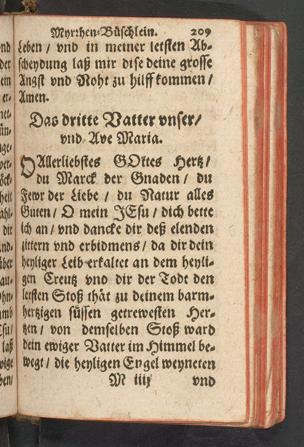 Myrrhen-Büschlein. 209
Leben / vnd in meiner letsten Ab-
scheydung laß mir dise deine grosse
Angst vnd Noht zu hilff kommen /
Amen.
Das dritte Vatter vnser /
vnd Ave Maria.
O Allerliebstes GOttes Hertz /
du Marck der Gnaden / du
Fewr der Liebe / du Natur alles
Guten / O mein JEsu / dich bette
ich an / vnd dancke dir deß elenden
zittern vnd erbidmens / da dir dein
heyliger Leib erkaltet an dem heyli-
gen Creutz vnd dir der Todt den
letsten Stoß thät zu deinem barm-
hertzigen süssen getrewesten Her-
tzen / von demselben Stoß ward
dein ewiger Vatter im Himmel be-
wegt / die heyligen Engel weyneten
M iiij vnd